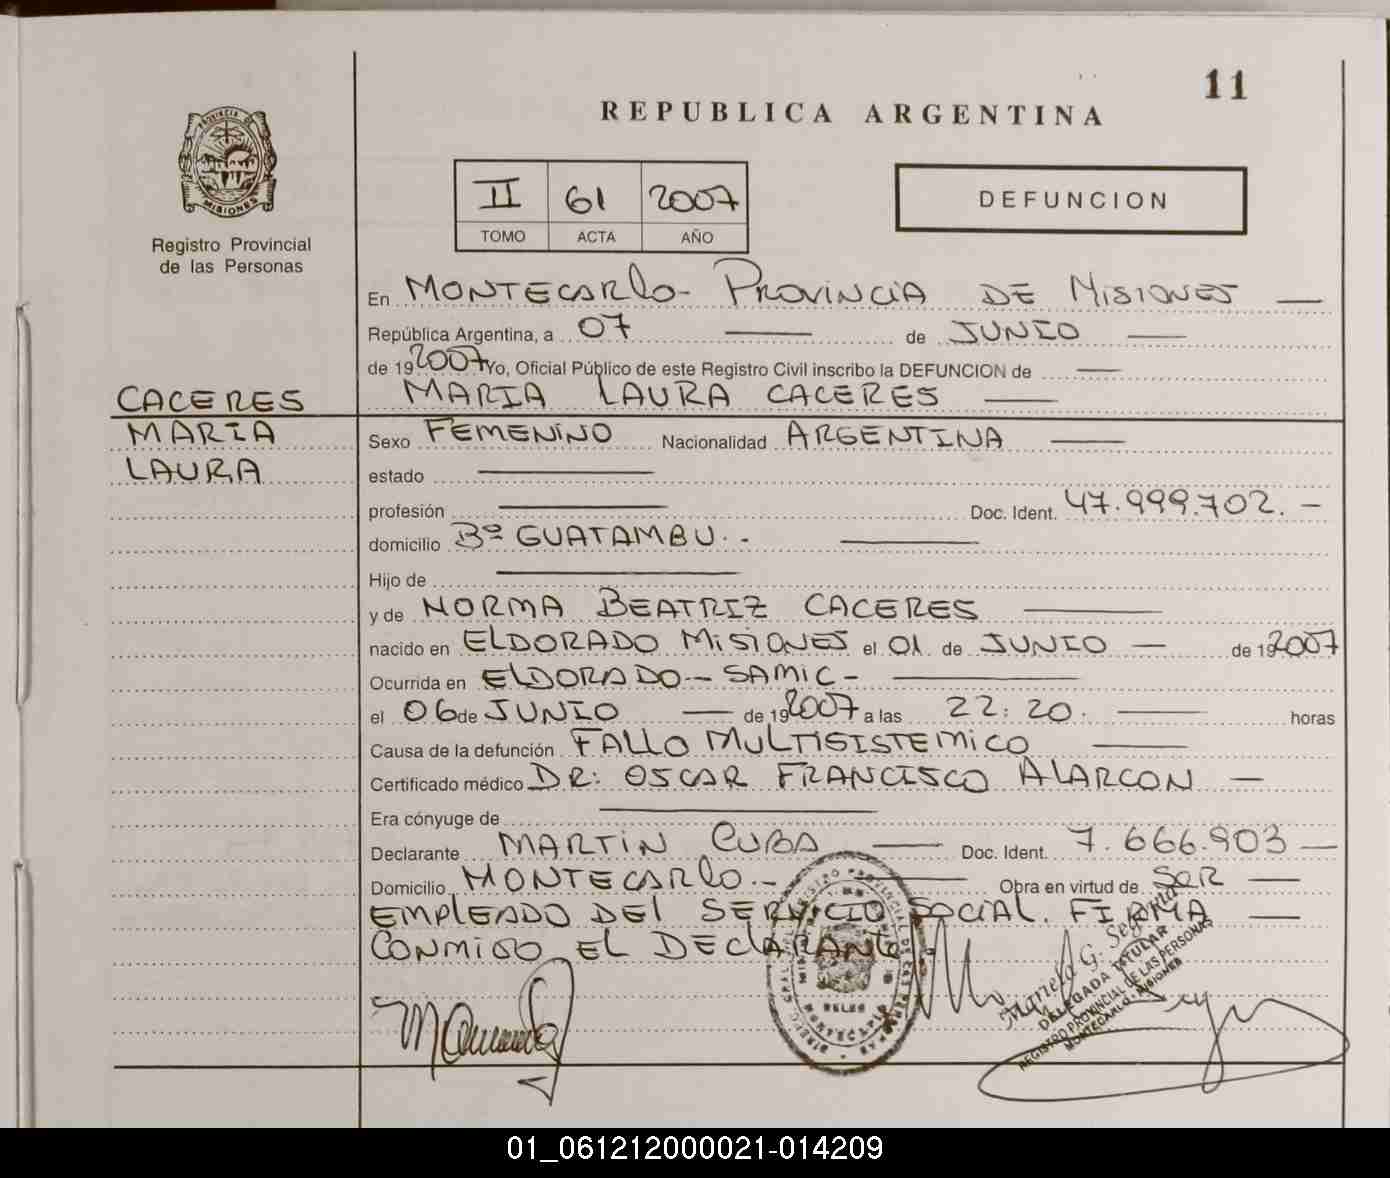 11
REPUBLICA ARGENTINA
PROVINCIA DE
MISIONES
Registro Provincial
de las Personas
II 61 2007
TOMO ACTA AÑO
DEFUNCION
En MONTECARLO- PROVINCIA DE MISIONES —
República Argentina, a 07 — de JUNIO —
de 19 2007 Yo, Oficial Público de este Registro Civil inscribo la DEFUNCION de —
CACERES MARIA LAURA CACERES —
MARIA Sexo FEMENINO Nacionalidad ARGENTINA —
LAURA estado —
profesión — Doc. Ident. 47.999.702. -
domicilio Bº GUATAMBU. - —
Hijo de —
y de NORMA BEATRIZ CACERES —
nacido en ELDORADO MISIONES el 01 de JUNIO — de 19 2007
Ocurrida en ELDORADO-- SAMIC- —
el 06 de JUNIO — de 19 2007 a las 22:20. — horas
Causa de la defunción FALLO MULTISISTEMICO —
Certificado médico DR: OSCAR FRANCISCO ALARCON —
Era cónyuge de —
Declarante MARTIN CUBA — Doc. Ident. 7.666.903 —
Domicilio MONTECARLO.- — Obra en virtud de SER —
EMPLEADO DEL SERVICIO SOCIAL. FIRMA —
CONMIGO EL DECLARANTE
DELEGADA TITULAR
REGISTRO PROVINCIAL DE LAS PERSONAS
MONTECARLO - MISIONES
01_061212000021-014209